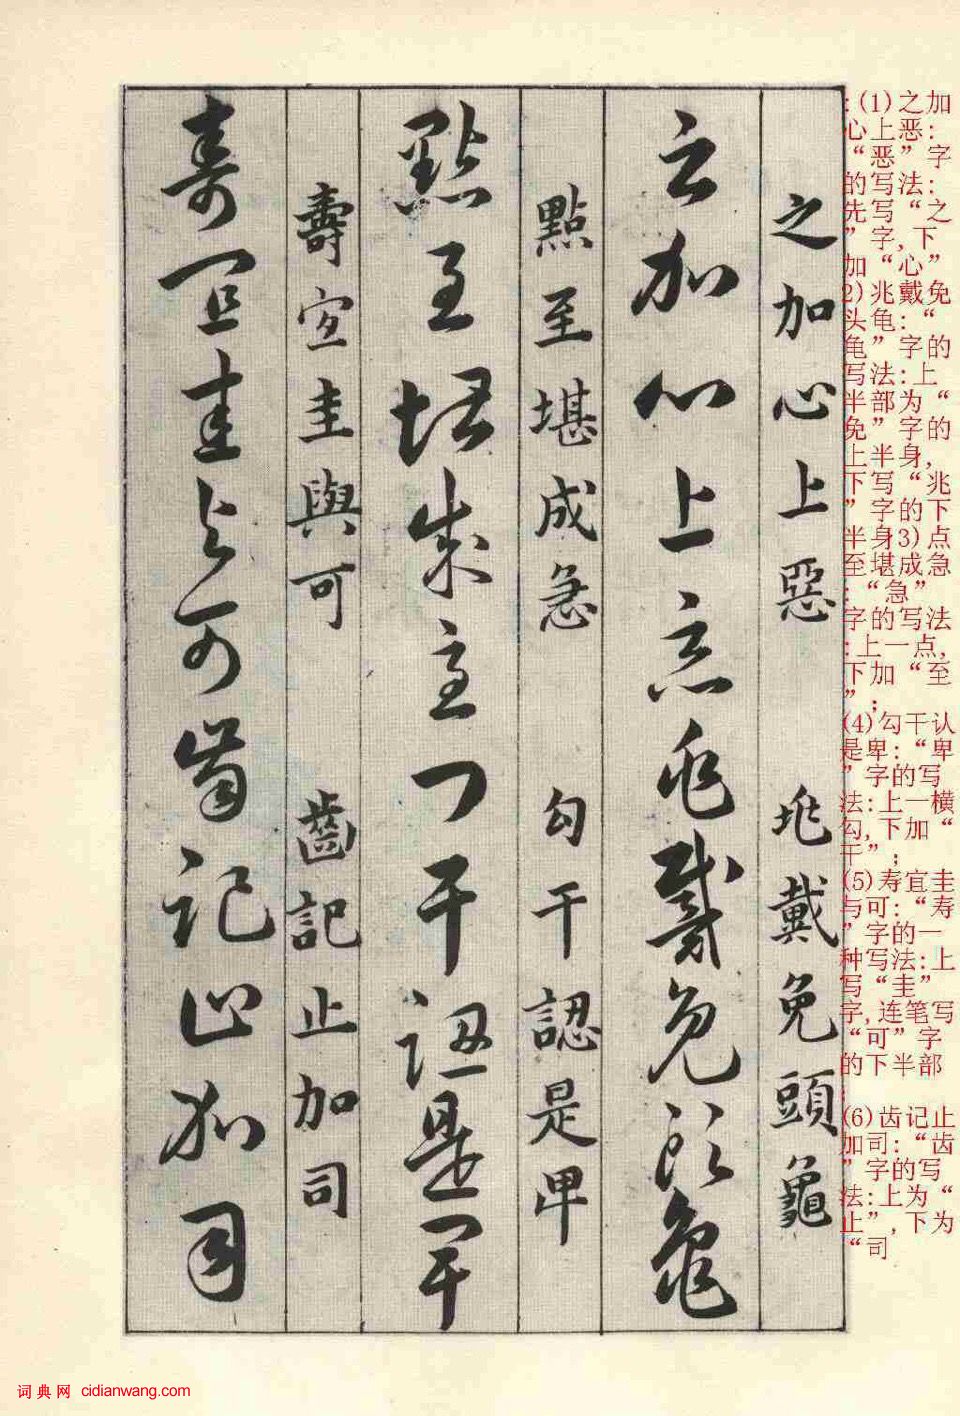 之加心上惡 兆戴免頭龜
之加心上惡兆戴免頭龜
點至堪成急 勾干認是卑
點至堪成急勾干認是卑
壽宜圭與可 齒記止加司
壽宜圭與可齒記止加司
:(1)之加
心上恶:
“恶”字
的写法:
先写“之
”字,下
加“心”
2)兆戴免
头龟:“
龟”字的
写法:上
半部为“
免”字的
上半身,
下写“兆
”字的下
半身3)点
至堪成急
:“急”
字的写法
:上一点,
下加“至
”;
(4)勾干认
是卑:“卑
”字的写
法:上一横
勾,下加“
干”;
(5)寿宜圭
与可:“寿
”字的一
种写法:上
写“圭”
字,连笔写
“可”字
的下半部
;
(6)齿记止
加司:“齿
”字的写
法:上为“
止”,下为
“司
词典网 cidianwang.com